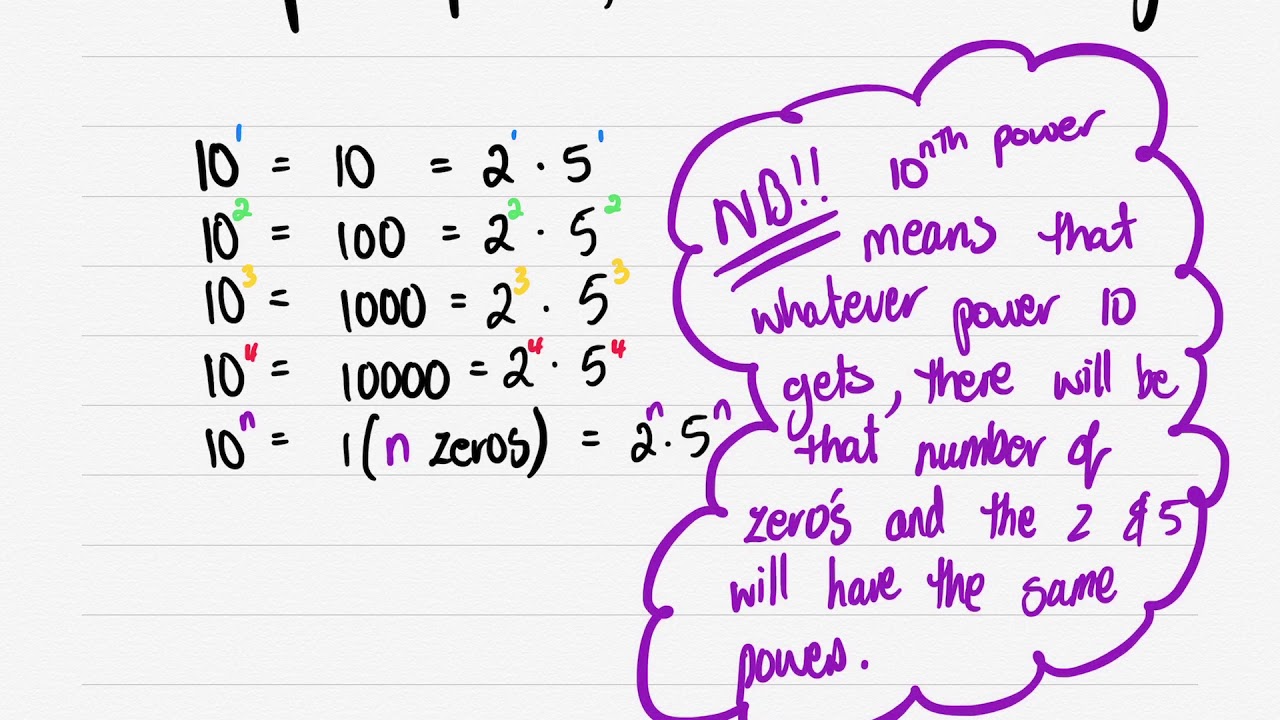 10¹ = 10 = 2¹ · 5¹
10² = 100 = 2² · 5²
10³ = 1000 = 2³ · 5³
10⁴ = 10000 = 2⁴ · 5⁴
10ⁿ = 1(n zeros) = 2ⁿ · 5ⁿ
NB!! 10ⁿᵀᴴ power
means that
whatever power 10
gets, there will be
that number of
zero's and the 2 & 5
will have the same
power.